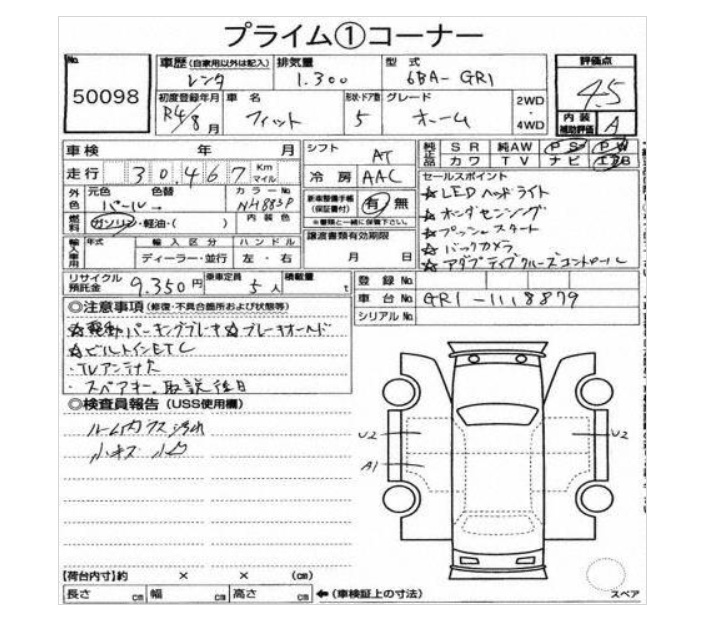 プライム①コーナー
No. 50098
車歴 (自家用以外は記入) レンタ
排気量 1.300
型式 6BA-GR1
評価点 4.5
初度登録年月 R4/8月
車名 フィット
形状・ドア数 5
グレード ホーム
2WD・4WD
内装補助評価 A
車検 年 月
シフト AT
純正品 SR 純AW PS PW
カワ TV ナビ エアB
走行 30.467 Km マイル
冷房 AAC
セールスポイント
☆LEDヘッドライト
☆ホンダセンシング
☆プッシュスタート
☆バックカメラ
☆アダプティブクルーズコントロール
外色 元色 パール→ 色替 カラーNo. NH883P
新車整備手帳 (保証書付) 有 無
※書類と一緒に保管下さい。
燃料 ガソリン・軽油・( ) 内装色
譲渡書類有効期限
月 日
輸入車用 年式 輸入区分 ハンドル
ディーラー・並行 左・右
リサイクル預託金 9.350円 乗車定員 5人 積載量 t
登録No.
車台No. GR1-1118879
シリアルNo.
◎注意事項 (修復・不具合箇所および状態等)
☆電動パーキングブレーキ☆ブレーキホールド
☆ビルトインETC
・TVアンテナ欠
・スペアキー、取説後日
◎検査員報告 (USS使用欄)
ルーム内 汚れ
小キズ 小凹
U2 U2
A1
【荷台内寸】約 × × (cm)
長さ cm 幅 cm 高さ cm ←(車検証上の寸法)
スペア